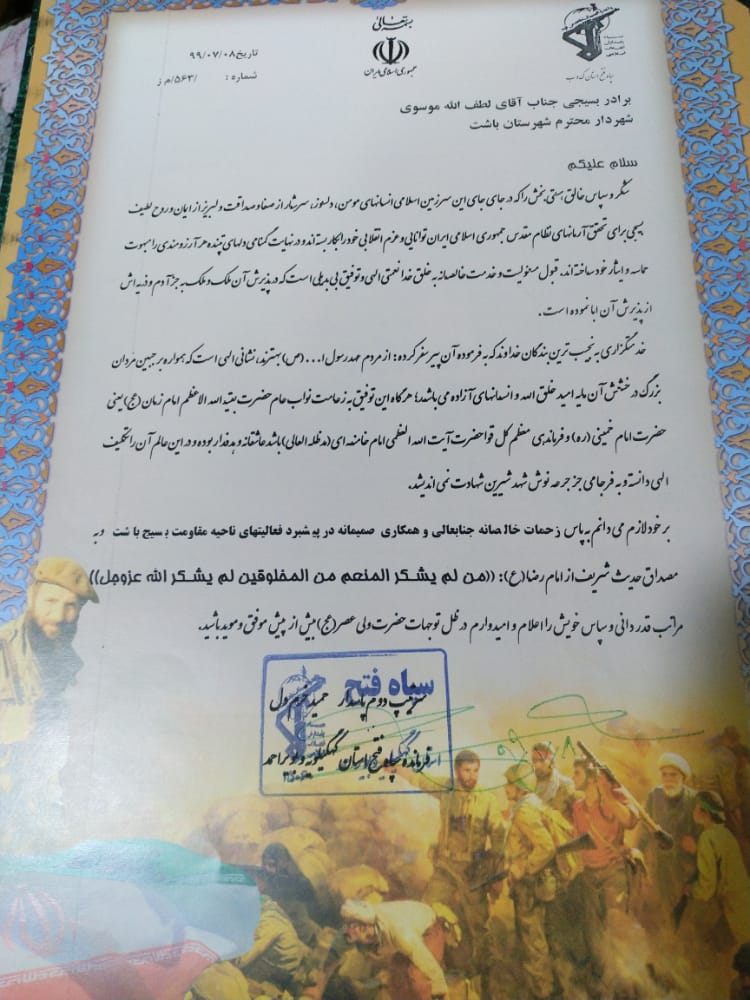 بسمه تعالی
جمهوری اسلامی ایران
سپاه فتح استان ک و ب
تاریخ ۹۹/۰۷/۰۸
شماره : /۵۶۳/م ز
برادر بسیجی جناب آقای لطف الله موسوی
شهردار محترم شهرستان باشت
سلام علیکم
شکر و سپاس خالق هستی بخش را که در جای جای این سرزمین اسلامی انسانهای مومن، دلسوز، سرشار از صفا و صداقت و لبریز از ایمان و روح لطیف
بسیجی برای تحقق آرمانهای نظام مقدس جمهوری اسلامی ایران توانایی و عزم انقلابی خود را بکار بسته اند و در نهایت گمنامی دلهای تپنده هر آرزومندی را مبهوت
حماسه و ایثار خود ساخته اند. قبول مسئولیت و خدمت خالصانه به خلق خدا نعمتی الهی و توفیق بی بدیلی است که در پذیرش آن ملک و ملک به جز آدم و ذریه اش
از پذیرش آن ابا نموده است.
خدمتگزاری به نجیب ترین بندگان خداوند که به فرموده آن پیر سفر کرده: از مردم عهد رسول ا... (ص) بهترند، نشانی الهی است که همواره بر جبین مردان
بزرگ درخشش آن مایه امید خلق الله و انسانهای آزاده می باشد؛ هرگاه این توفیق به زعامت نواب عام حضرت بقیه الله الاعظم امام زمان (عج) یعنی
حضرت امام خمینی (ره) و فرماندهی معظم کل قوا حضرت آیت الله العظمی امام خامنه ای (مد ظله العالی) باشد عاشقانه و هدفدار بوده و در این عالم آن را تکلیف
الهی دانسته و به فرجامی جز جرعه نوش شهد شیرین شهادت نمی اندیشد.
بر خود لازم می دانم به پاس زحمات خالصانه جنابعالی و همکاری صمیمانه در پیشبرد فعالیتهای ناحیه مقاومت بسیج باشت و به
مصداق حدیث شریف از امام رضا (ع): ((من لم یشکر المنعم من المخلوقین لم یشکر الله عزوجل))
مراتب قدردانی و سپاس خویش را اعلام و امیدوارم در ظل توجهات حضرت ولی عصر (عج) بیش از پیش موفق و موید باشید.
سپاه فتح
سرتیپ دوم پاسدار حمید خرم سول
فرمانده سپاه فتح استان کهگیلویه و بویراحمد